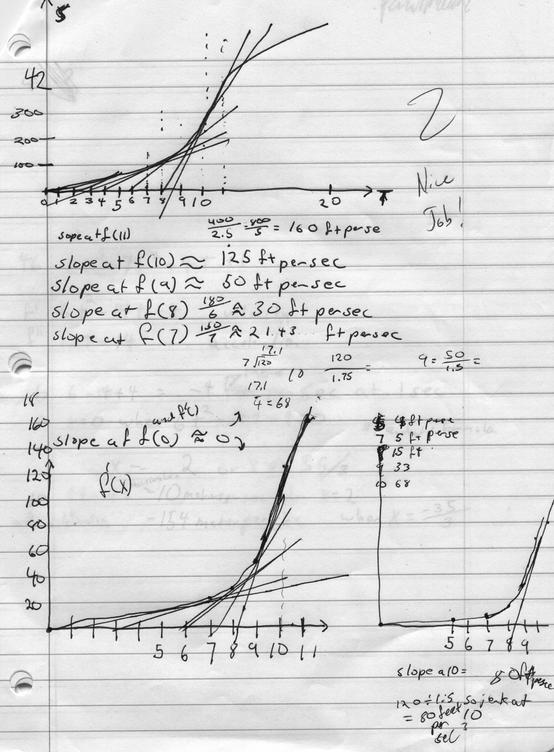 S
42
300
200
100
1 2 3 4 5 6 7 8 9 10 20 T
2
Nice
Job!
slope at f(11) 400/2.5 = 800/5 = 160 ft per se
slope at f(10) ≈ 125 ft per sec
slope at f(9) ≈ 50 ft per sec
slope at f(8) 180/6 ≈ 30 ft per sec
slope at f(7) 150/7 ≈ 21.43 ft per sec
17.1
7√120
120/1.75 =
9 = 50/1.5 =
17.1
4 = 68
18
160
140
120
100
80
60
40
20
and f'()
slope at f(0) ≈ 0
f'(x)
5 6 7 8 9 10 11
7 5 ft per se
8 15 ft
9 33
10 68
5 6 7 8 9
slope a 10 = 80 ft
120 ÷ 1.5, so jerk at
= 80 feet 10
per ?
sec